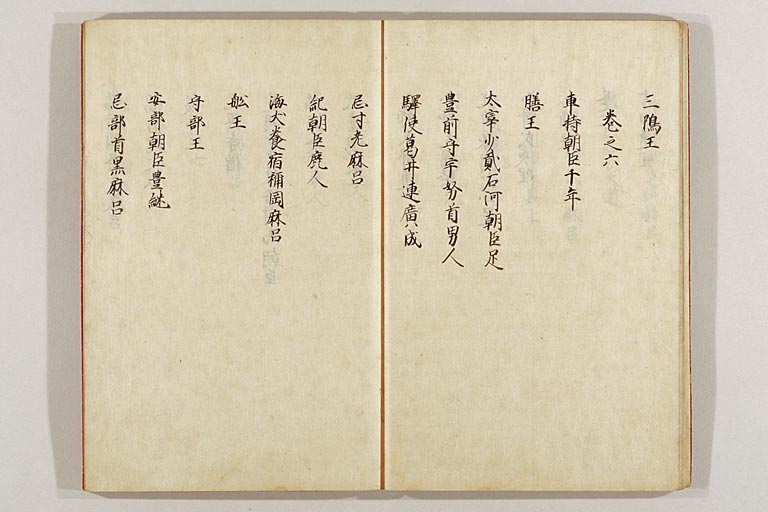 三隝王
巻之六
車持朝臣千年
膳王
太宰少貳石河朝臣足
豊前守宇努首男人
驛使葛井連廣成
忌寸老麻呂
紀朝臣鹿人
海犬養宿祢岡麻呂
舩王
守部王
安部朝臣豊継
忌部首黒麻呂